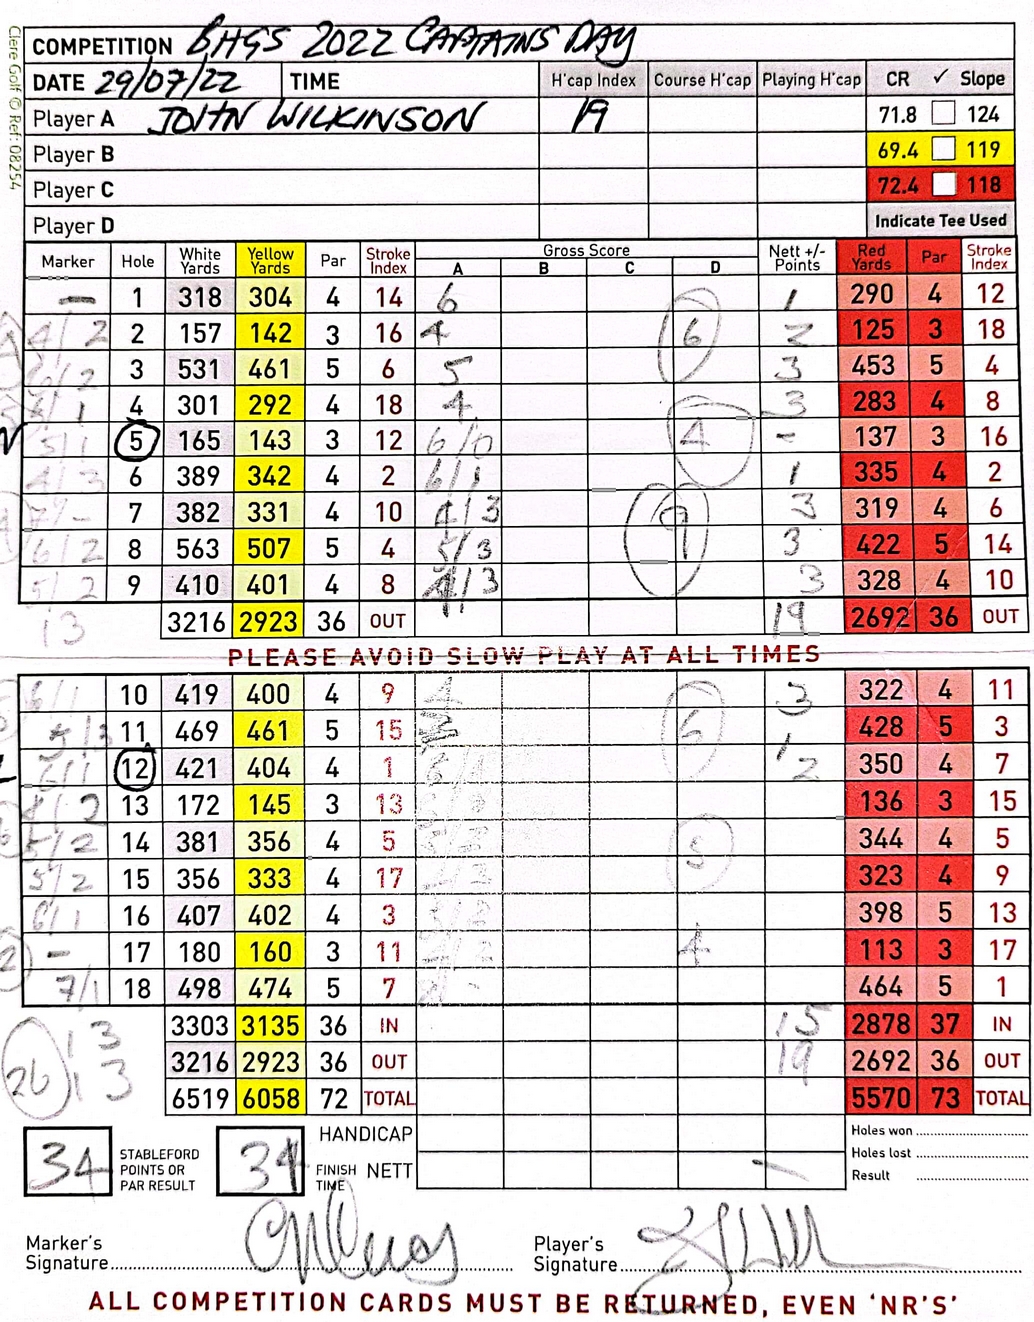 Clere Golf © Ref: 08254
COMPETITION BHGS 2022 CAPTAINS DAY
DATE 29/07/22 TIME H'cap Index Course H'cap Playing H'cap CR ✓ Slope
Player A JOHN WILKINSON 19 71.8 124
Player B 69.4 119
Player C 72.4 118
Player D Indicate Tee Used
Marker Hole White Yards Yellow Yards Par Stroke Index Gross Score A B C D Nett +/- Points Red Yards Par Stroke Index
- 1 318 304 4 14 6 1 290 4 12
4/2 2 157 142 3 16 4 6 2 125 3 18
6/2 3 531 461 5 6 5 3 453 5 4
1 4 301 292 4 18 4 3 283 4 8
5/1 5 165 143 3 12 6/0 4 - 137 3 16
4/3 6 389 342 4 2 6/1 1 335 4 2
7/- 7 382 331 4 10 4/3 9 3 319 4 6
6/2 8 563 507 5 4 5/3 3 422 5 14
5/2 9 410 401 4 8 4/3 3 328 4 10
13 3216 2923 36 OUT 19 2692 36 OUT
PLEASE AVOID SLOW PLAY AT ALL TIMES
6/1 10 419 400 4 9 4 3 322 4 11
5/3 11 469 461 5 15 1 428 5 3
6/1 12 421 404 4 1 2 350 4 7
4/2 13 172 145 3 13 136 3 15
5/2 14 381 356 4 5 5 344 4 5
5/2 15 356 333 4 17 323 4 9
6/1 16 407 402 4 3 398 5 13
- 17 180 160 3 11 4 113 3 17
7/1 18 498 474 5 7 464 5 1
13 3303 3135 36 IN 15 2878 37 IN
26 13 3216 2923 36 OUT 19 2692 36 OUT
6519 6058 72 TOTAL 5570 73 TOTAL
34 STABLEFORD POINTS OR PAR RESULT 34 FINISH TIME HANDICAP NETT
Holes won
Holes lost
Result
Marker's Signature
Player's Signature
ALL COMPETITION CARDS MUST BE RETURNED, EVEN 'NR'S'